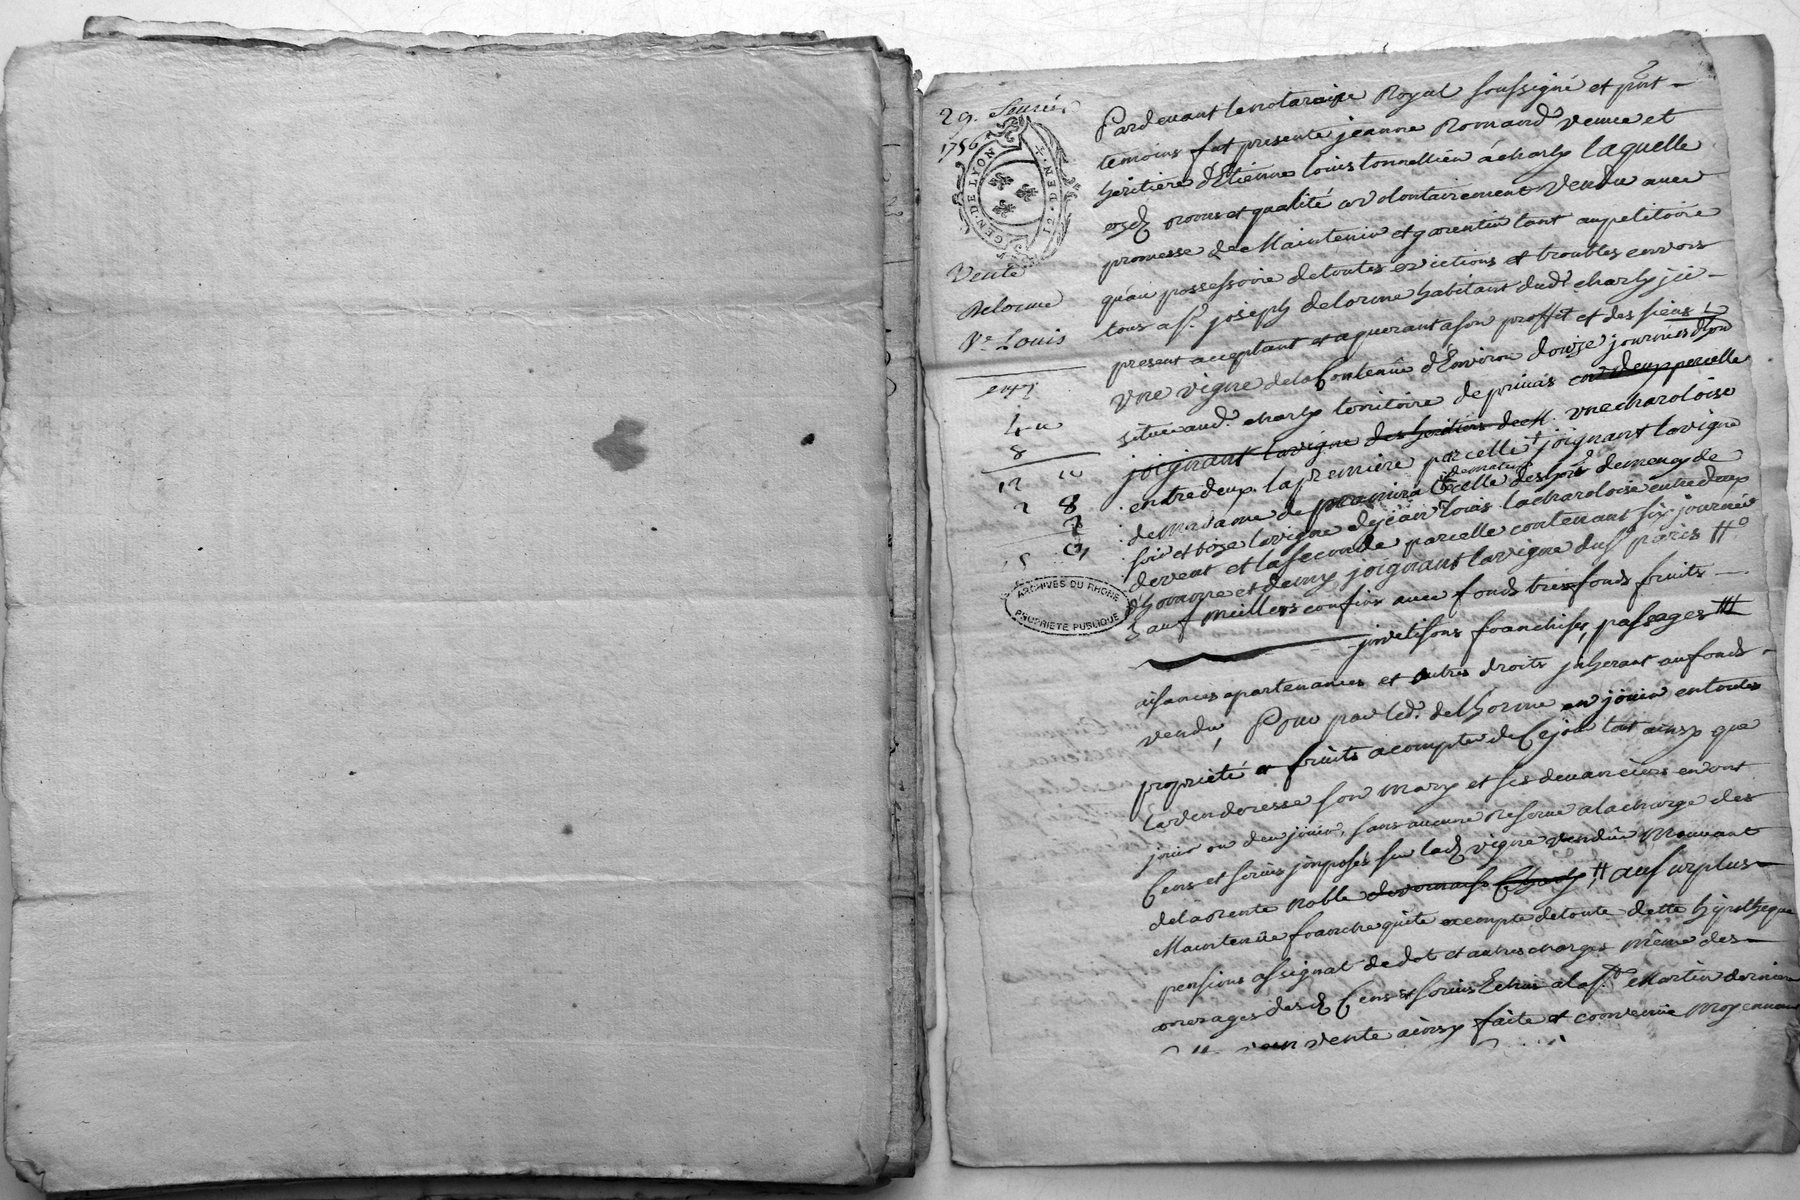 29. Janvier
1756
GEN. DE LYON
I2. DEN.
Vente
Delorme
Ve. Louis
ARCHIVES DU RHONE
PROPRIETE PUBLIQUE
Pardevant le notaire Royal soussigné et pnt
temoins fut presente jeanne Romand veuve et
heritiere d'Etienne Louis tonnellier a charly laquelle
esd noms et qualité a volontairement vendu avec
promesse de Maintenir et garentir tant au petitoire
qu'au possessoire de toutes evictions et troubles envers
tous a sr. joseph delorme habitant dud. charly ici
present acceptant et aquerant a son proffit et des siens
Une vigne de la Contenüe d'Environ douze journées d'hom
située aud. charly territoire de primais en deux parcelle
joignant la vigne des heritiers de M. une charoloise
entre deux. la premiere parcelle joignant la vigne
de madame de celle des demency de
soir et bize la vigne de jean Louis la charoloise entredeux
de vent et la seconde parcelle contenant six journée
d'homme et demy joignant la vigne du sr paris
Sauf meilleurs confins avec fonds tres fonds fruits
invetisons franchises, passages
aisances apartenances et autres droits jnherant au fonds
vendu, Pour par led. delhorme en jouir en toutes
proprieté et fruits a compter de Cejour tout ainsy que
La venderesse son mary et ses devanciers en ont
jouis ou deu jouir, sans aucune Reserve a la charge des
Cens et servis jmposés sur lad vigne vendüe Mouvant
de la rente Noble au surplus
Maintenüe franche quite exempte de toute dette hipotheque
pensions assignat de dot et autres charges même des
arrerages desd Cens et servis Echus a la st. Martin derniere
vente ainsy faite et convenüe Moyennant